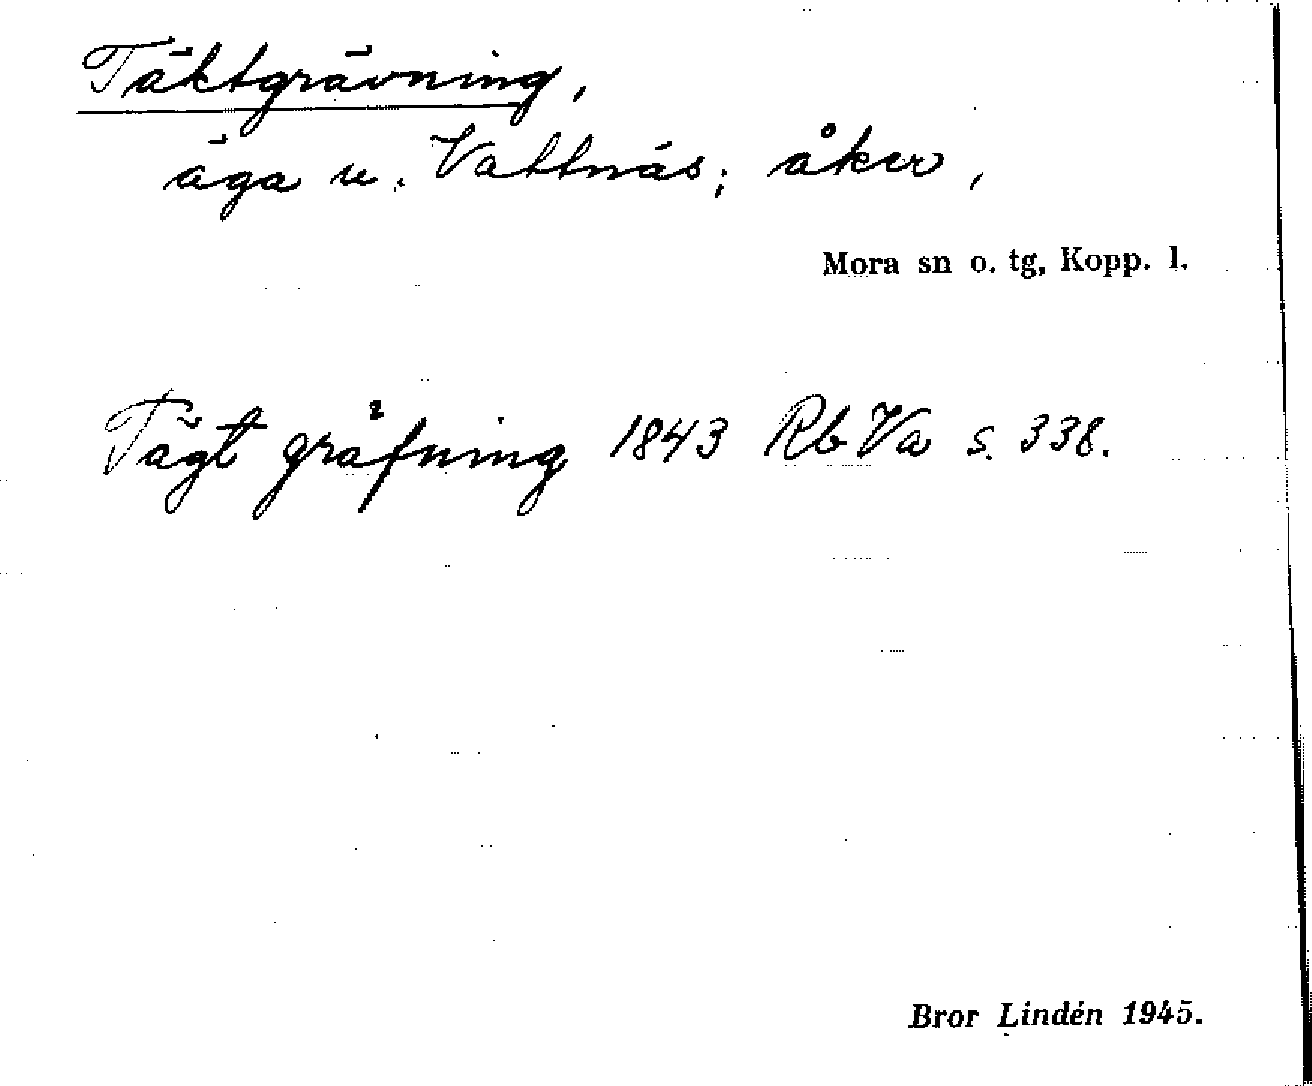 Täktgrävning,
äga u. Vattnäs; åker,
Mora sn o. tg, Kopp. l.
Tägt gräfning 1843 Rb Va s. 338.
Bror Lindén 1945.